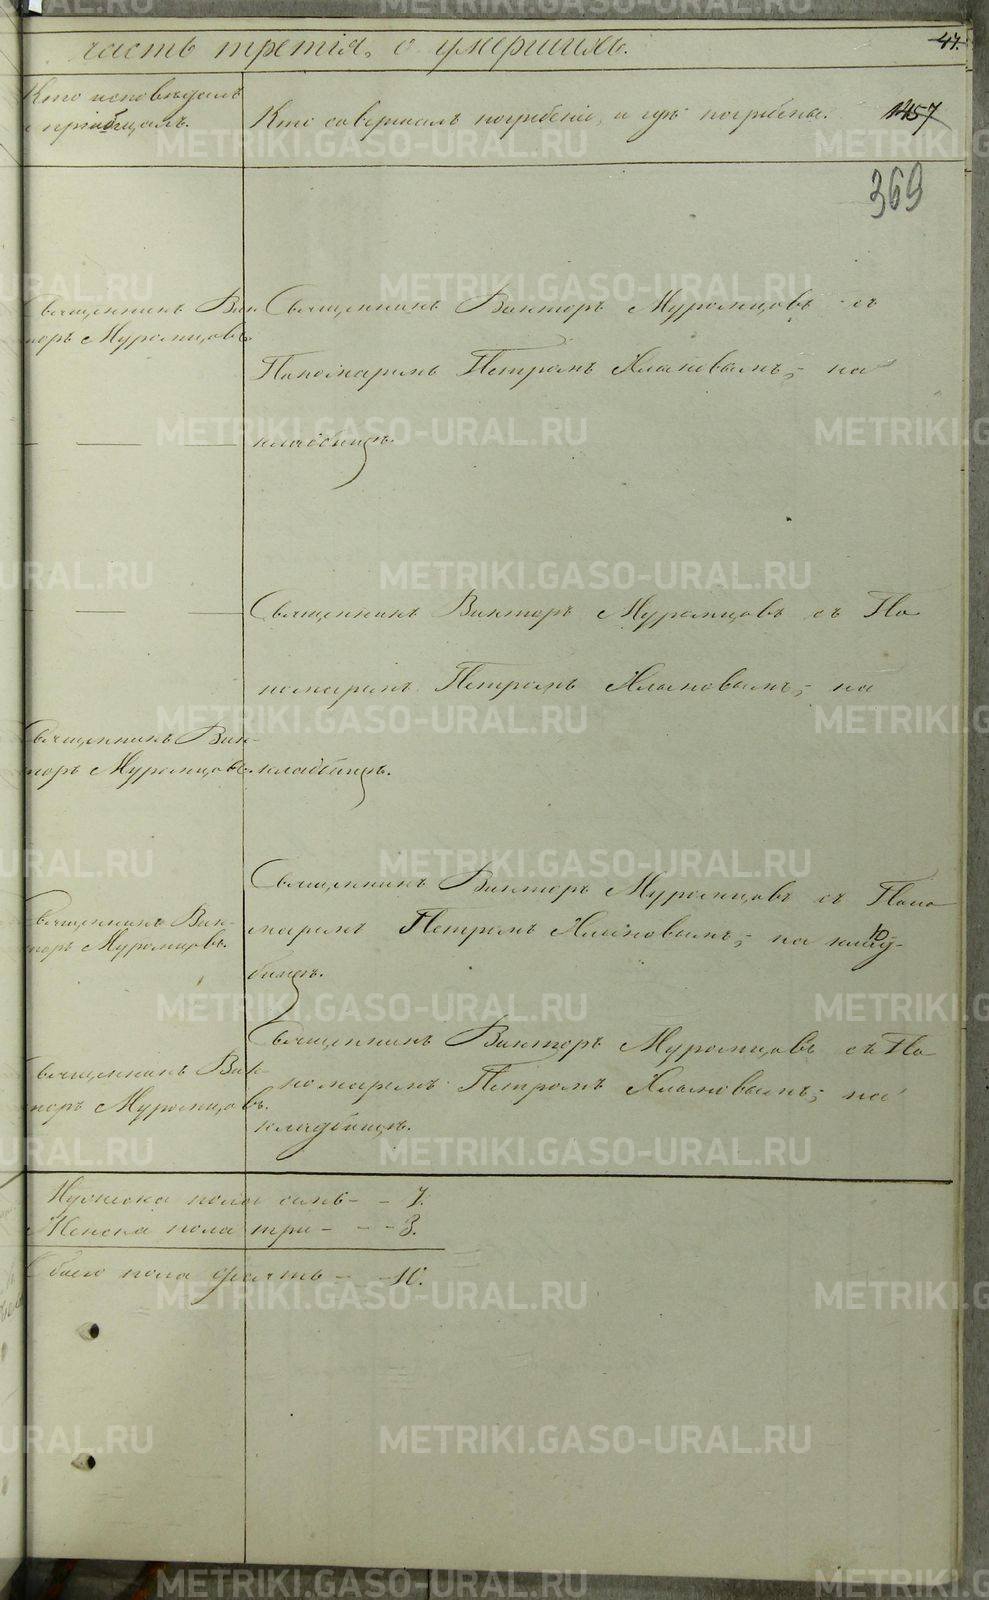 часть третія, о умершихъ.
47.
Кто исповѣдалъ
и пріобщалъ.
Кто совершалъ погребеніе, и гдѣ погребены.
1457
369
Священникъ Вик-
торъ Муромцовъ.
Священникъ Викторъ Муромцовъ съ
Пономаремъ Петромъ Хлыновымъ, на
кладбищѣ.
Священникъ Викторъ Муромцовъ съ По
номаремъ Петромъ Хлыновымъ, на
Священникъ Вик-
торъ Муромцовъ.
кладбищѣ.
Священникъ Викторъ Муромцовъ съ Поно
Священникъ Вик-
торъ Муромцовъ.
маремъ Петромъ Хлыновымъ, на клад-
бищѣ.
Священникъ Викторъ Муромцовъ съ По
Священникъ Вик-
торъ Муромцовъ.
номаремъ Петромъ Хлыновымъ, на
кладбищѣ.
Мужеска пола семь - - 7.
Женска пола три - - - 3.
Обоего пола десять - - 10.
METRIKI.GASO-URAL.RU